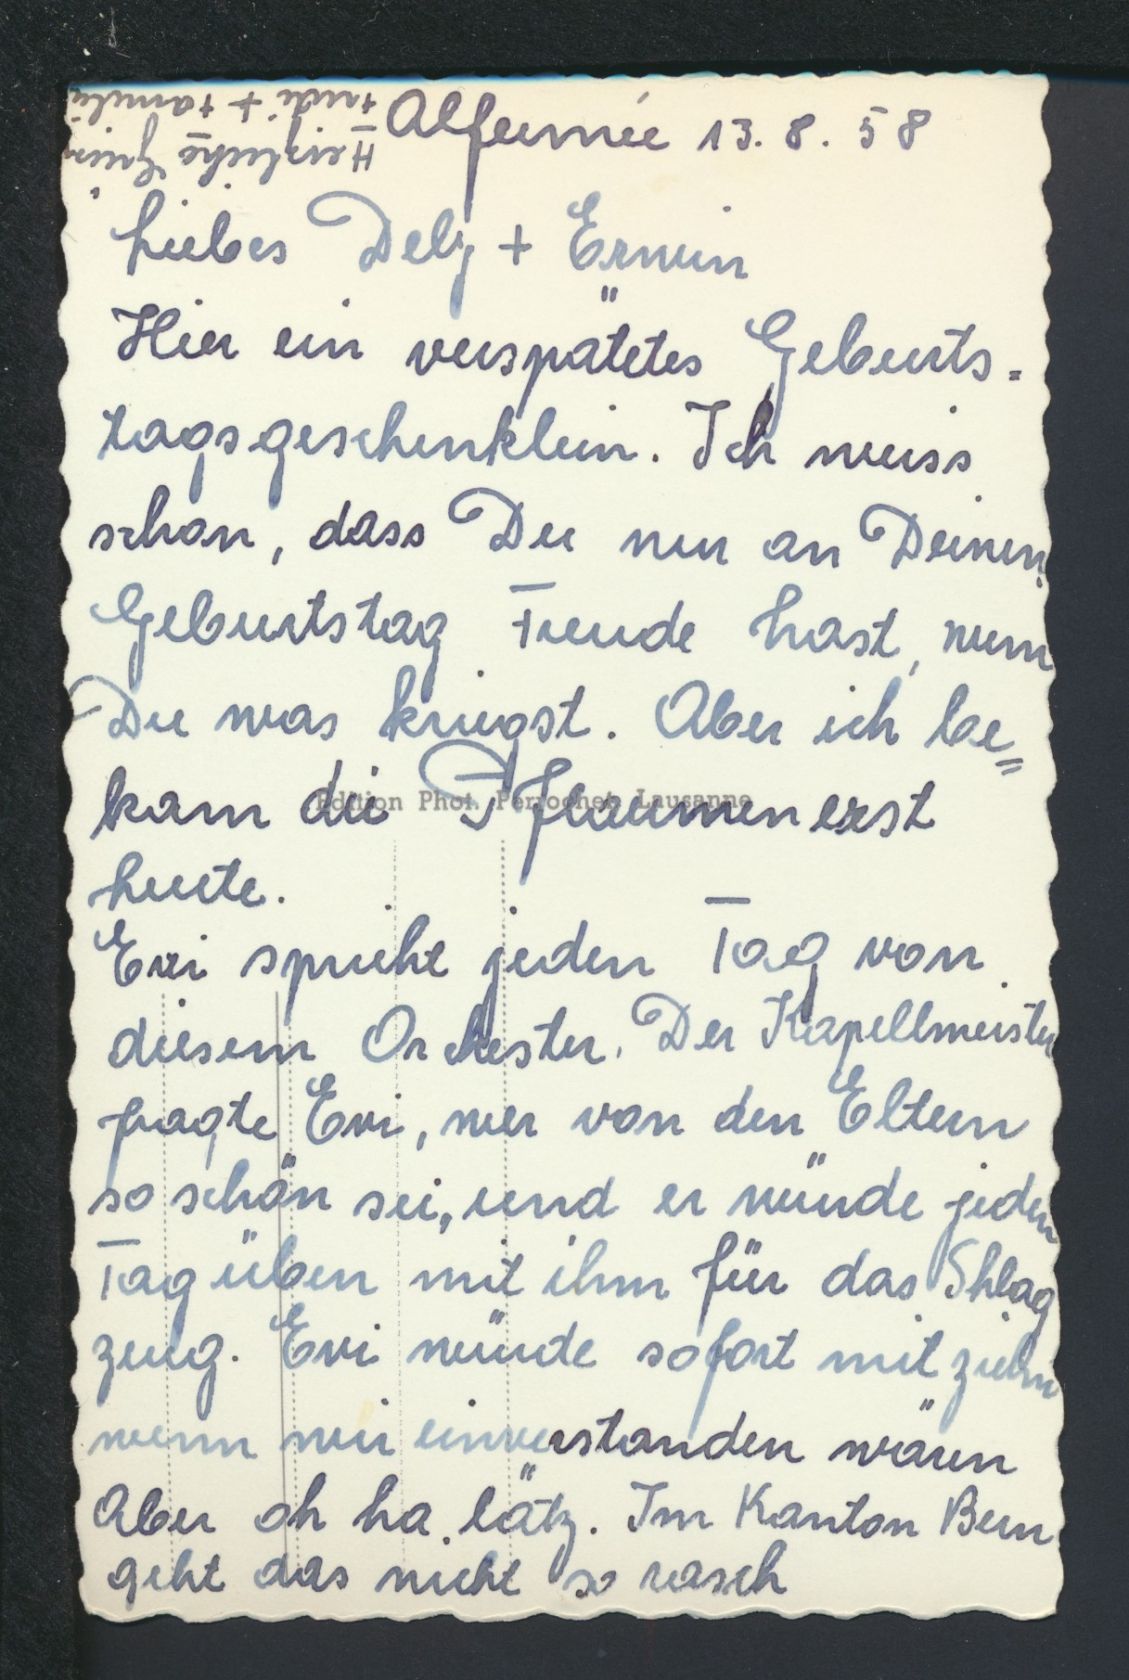 Alfermée 13. 8. 58
Liebes Dely + Erwin
Hier ein verspätetes Geburts=
tagsgeschenklein. Ich weiss
schon, dass Du nur an Deinem
Geburtstag Freude hast, wenn
Du was kriegst. Aber ich be=
kam die Pflaumen erst
heute.
Edition Phot. Perrochet, Lausanne
Evi spricht jeden Tag von
diesem Orchester. Der Kapellmeister
fragte Evi, wer von den Eltern
so schön sei, und er würde jeden
Tag üben mit ihm für das Shlag
zeug. Evi würde sofort mit ziehn
wenn wir einverstanden wären
Aber oh ha lätz. Im Kanton Bern
geht das nicht so rasch
Herzliche Grüsse
Trudi + Familie